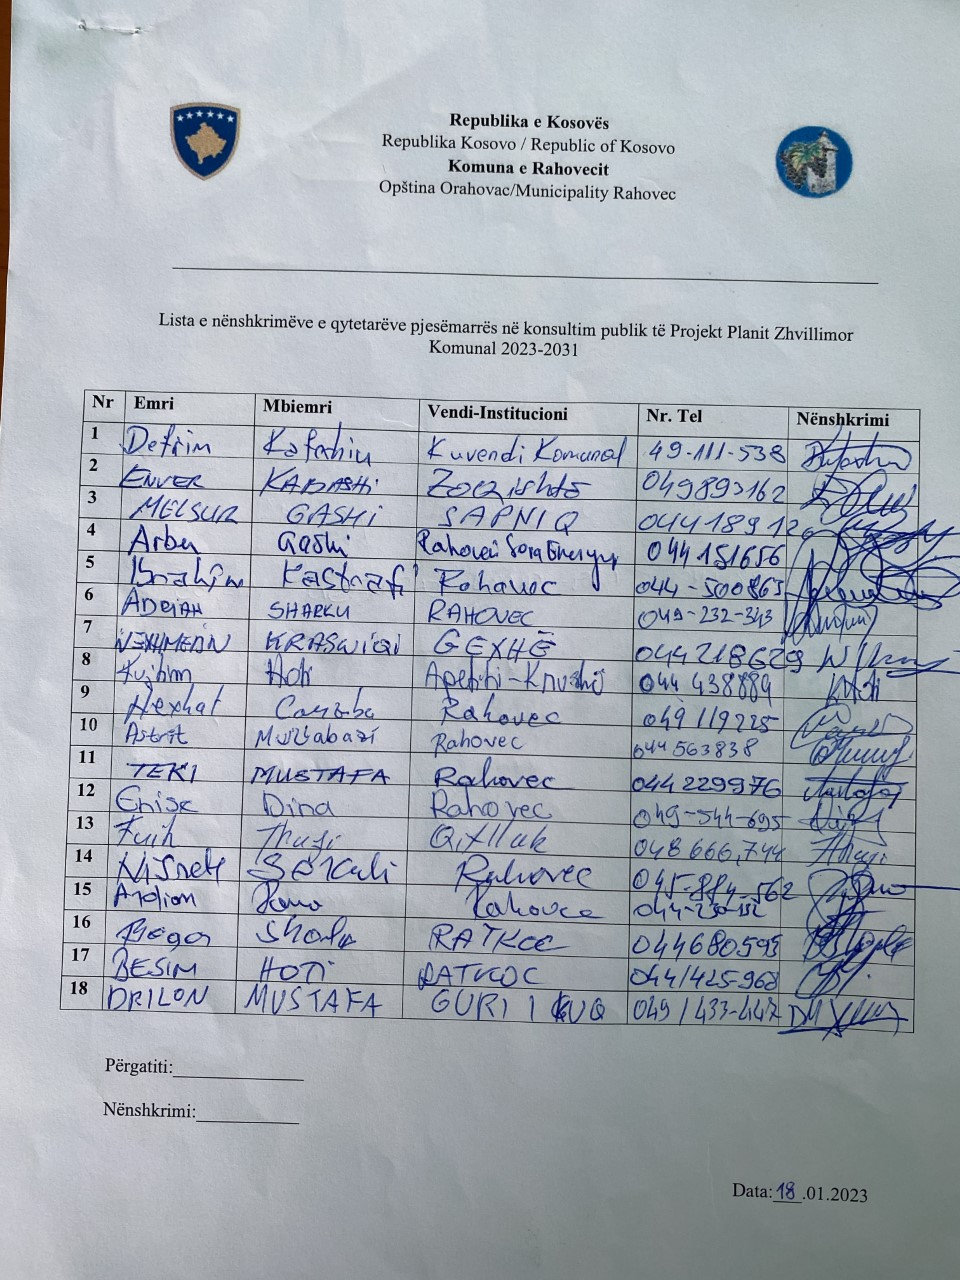 Republika e Kosovës
Republika Kosovo / Republic of Kosovo
Komuna e Rahovecit
Opština Orahovac/Municipality Rahovec
Lista e nënshkrimëve e qytetarëve pjesëmarrës në konsultim publik të Projekt Planit Zhvillimor
Komunal 2023-2031
Nr Emri Mbiemri Vendi-Institucioni Nr. Tel Nënshkrimi
1 Defrim Kuvendi Komunal 49-111-538
2 ENVER KABASHI 049893162
3 MELSUR GASHI SAPNIQ
4 Arben Gashi Rahoveci Sora Energy 044 151656
5 Ibrahim Kastrati Rahovec 044-500863
6 ADRIAN SHARKU RAHOVEC 049-232-343
7 NEXHMEDIN KRASNIQI GEXHË 044218629
8 Fujtim Hoti 044 438889
9 Nexhat Rahovec 049 119225
10 Astrit Rahovec 044 563838
11 TEKI MUSTAFA Rahovec 044229976
12 Enise Dina Rahovec 049-544-695
13 Thaqi 048 666,744
14 Rahovec 045-884-562
15 Ardian Rahovec 044-230-152
16 RATKOC 044680595
17 BESIM HOTI RATKOC 044/425-968
18 DRILON MUSTAFA GURI I KUQ 049/433-447
Përgatiti:
Nënshkrimi:
Data: 18.01.2023